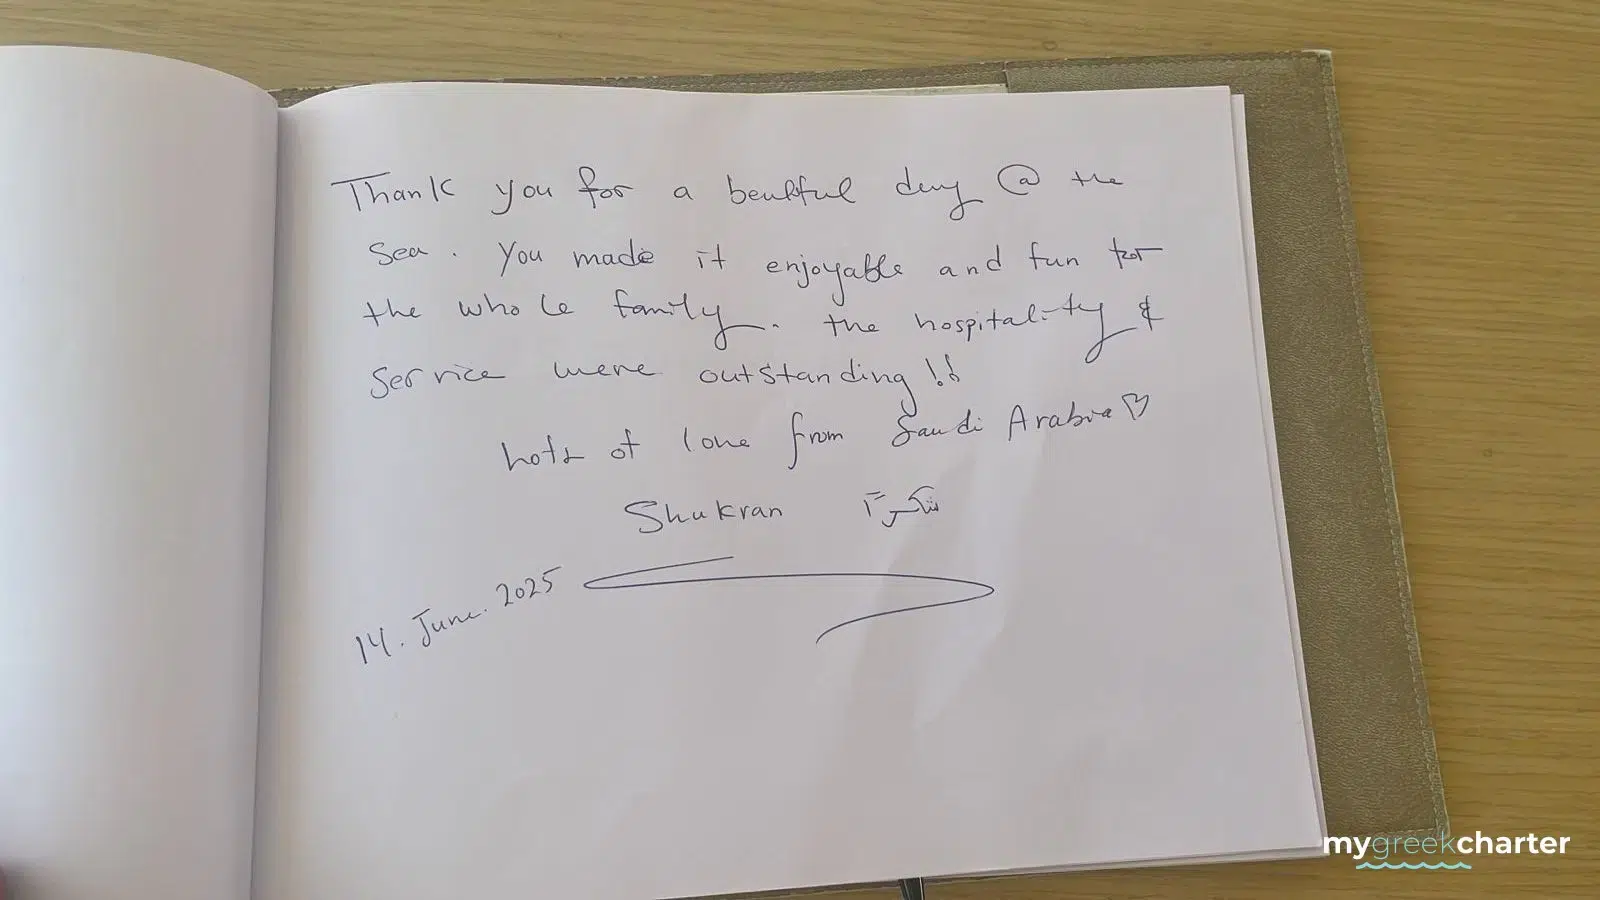 Thank you for a beutful day @ the
sea. You made it enjoyable and fun for
the whole family. the hospitality &
service were outstanding!!
Lots of love from Saudi Arabia ♡
Shukran شكراً
14. June. 2025
mygreekcharter